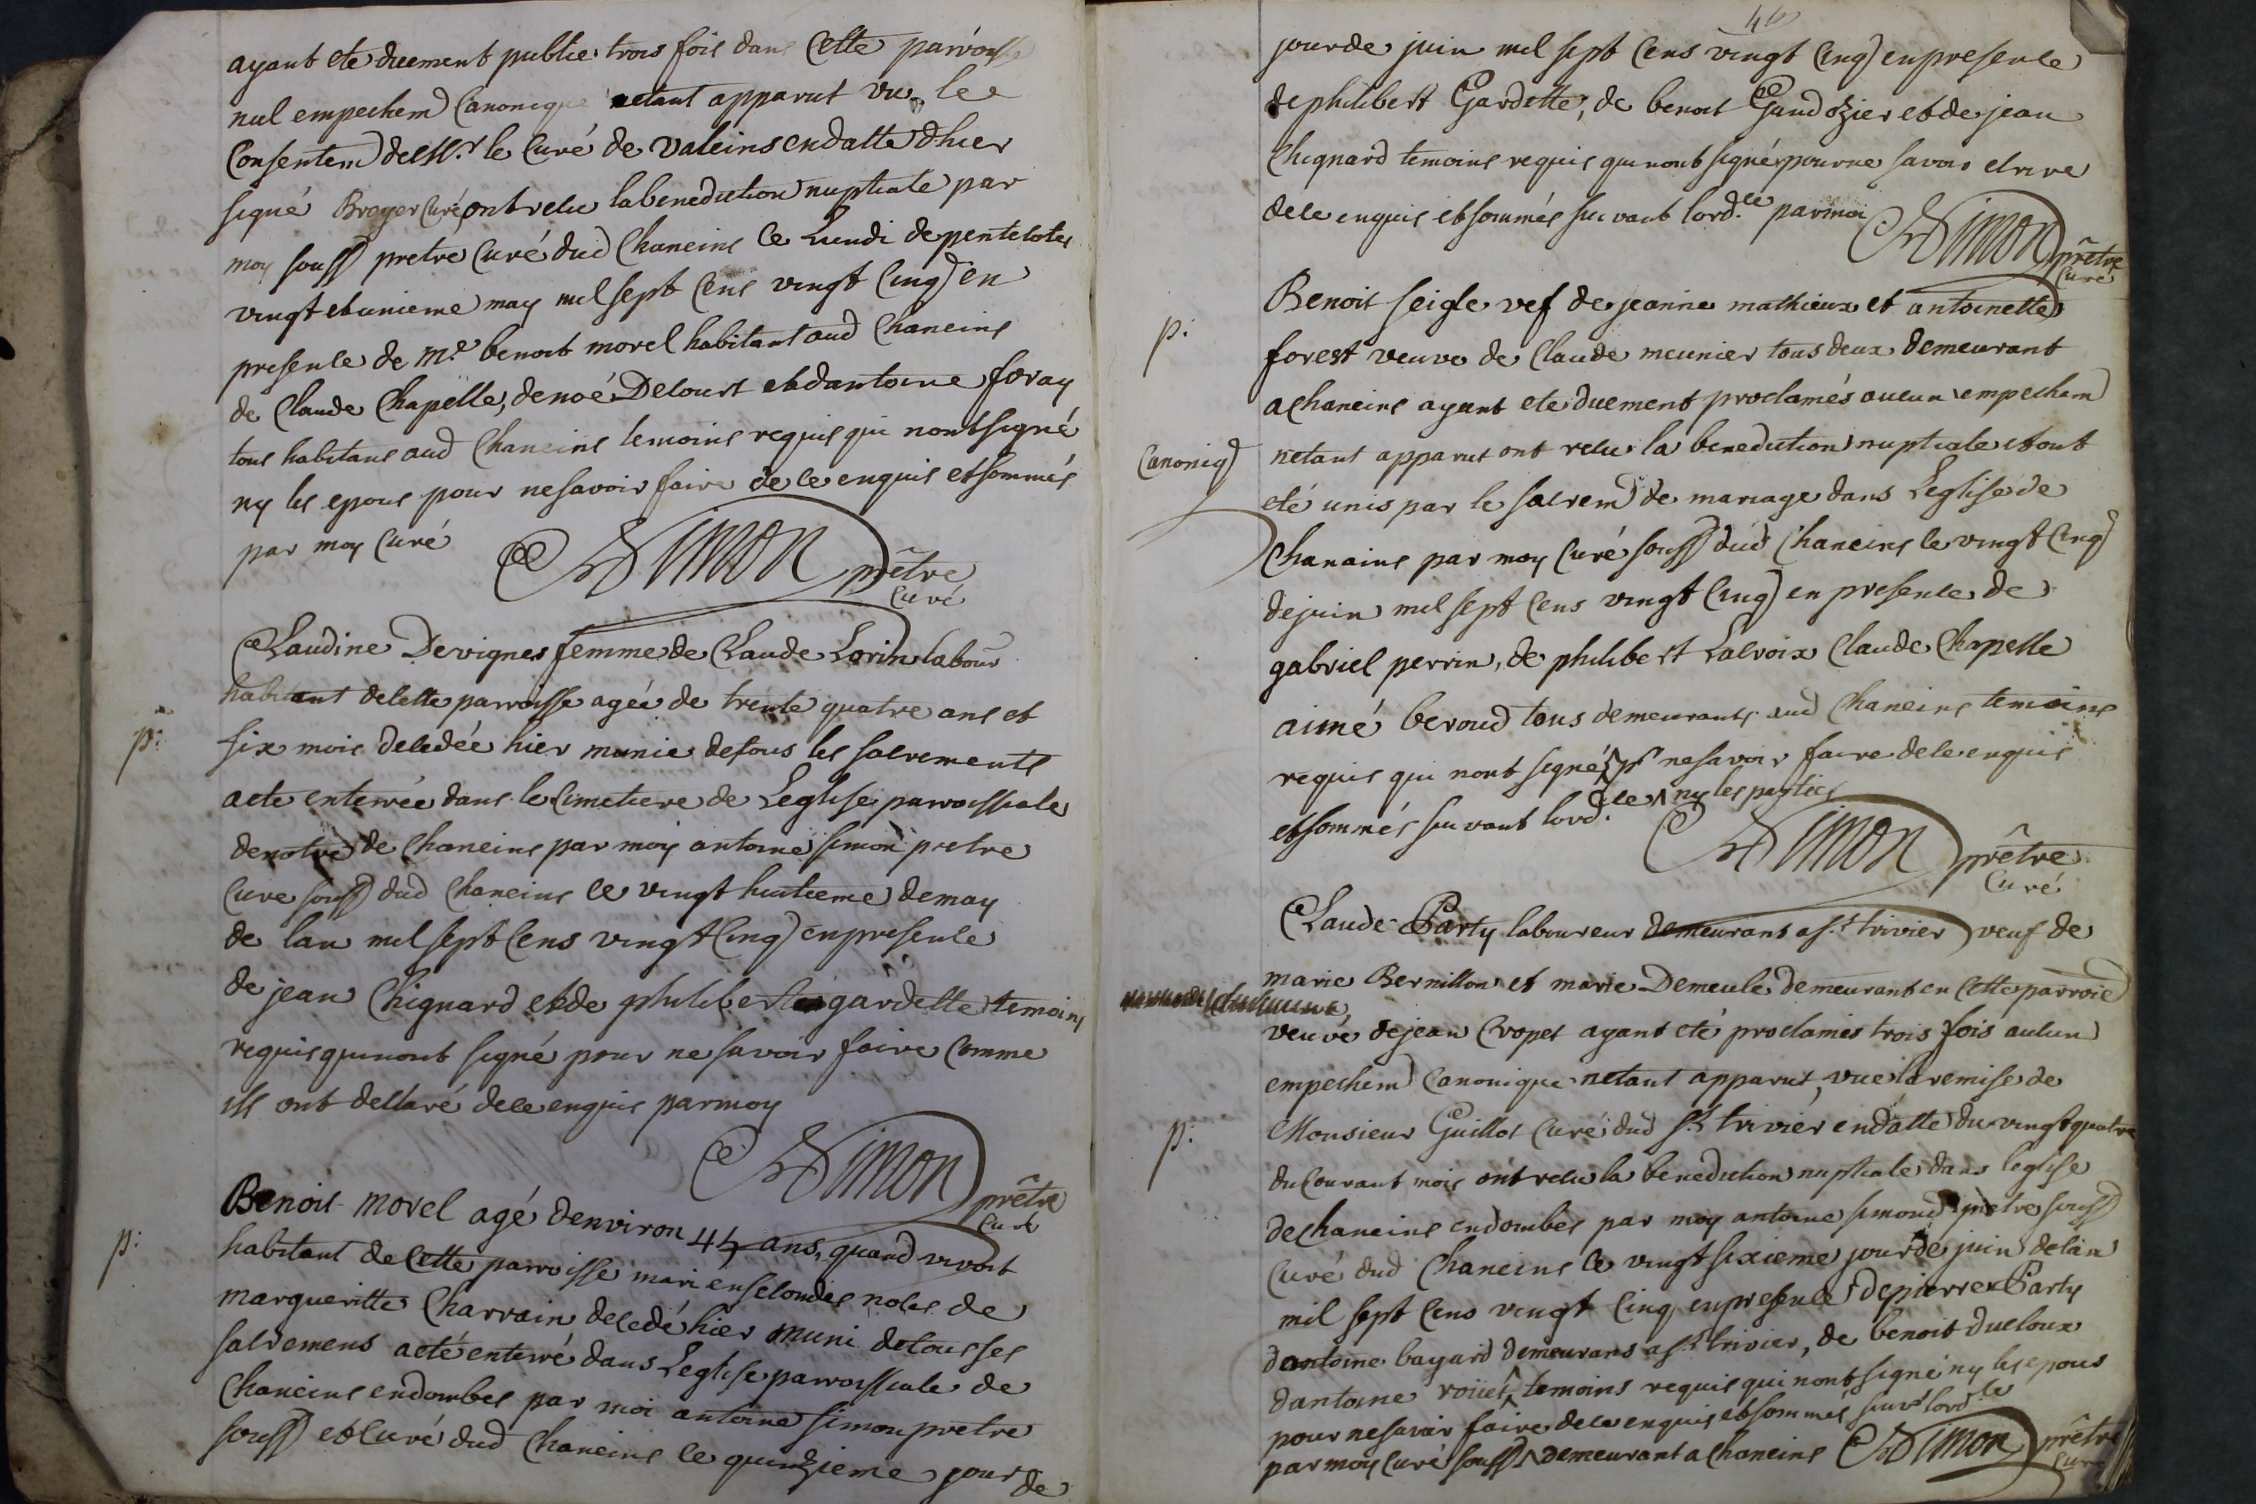 ayant ete duement publie trois fois dans Cette parroisse
nul empechem Canonique netant apparut vu le
Consentem de Mr. le Curé de Valeins en datte dhier
signé Broyer Curé, ont relu la benediction nuptiale par
moy souss pretre Curé dud Chaneins le Lundi de pentecotes
vingt et unieme may mil sept Cens vingt Cinq en
presence de Me. benoit morel habitant aud Chaneins
de Claude Chapelle, de noé Delourt et dantoine foray
tous habitans aud Chaneins temoins requis qui nont signé
ny les epous pour ne savoir faire de ce enquis et sommés
par moy Curé
Simon prêtre
Curé
Claudine Devignes femme de Claude Lorin labour
habitant de cette parroisse agée de trente quatre ans et
p:
six mois decedée hier munie de tous les sacrements
a ete enterrée dans le Cimetiere de Leglise parroissiale
de notre de Chaneins par moy antoine simon pretre
Cure souss dud Chaneins le vingt huitieme de may
de lan mil sept Cens vingt Cinq en presence
de jean Chignard et de philibert gardette temoins
requis qui nont signé pour ne savoir faire Comme
ils ont declaré de ce enquis par moy
Simon prêtre
Curé
Benoit morel agé denviron 44 ans, quand vivoit
p:
habitant de Cette parroisse mari en secondes noces de
margueritte Charvain decedé hier muni de tous ses
sacremens a eté enterré dans Leglise parroissiale de
Chaneins en dombes par moi antoine simon pretre
souss et Curé dud Chaneins le quinzieme jour de
46
jour de juin mil sept Cens vingt Cinq en presence
de philibert Gardette, de benoit Gandozier et de jean
Chignard temoins requis qui nont signé pour ne savoir ecrire
de ce enquis et sommés suivant lord.ce par moi
Simon prêtre
Curé
Benoit seigle vef de jeanne mathieux et antoinette
p:
forest veuve de Claude meunier tous deux demeurant
a chaneins ayant ete duement proclamés aucun empechem
Canoniq
netant apparut ont relu la benediction nuptiale et ont
eté unis par le sacrem de mariage dans Leglise de
Chanains par moy Curé souss dud Chaneins le vingt Cinq
de juin mil sept Cens vingt Cinq en presence de
gabriel perrin, de philibert Lalroix Claude Chapelle
aimé beroud tous demeurants aud Chaneins temoins
requis qui nont signé pr ne savoir faire de ce enquis
et sommés suivant lord.ce ny les parties
Simon prêtre
Curé
Claude Party laboureur demeurant a st. trivier veuf de
marie Bernillon et marie Demeule demeurant en Cette parroie
veuve de jean Cropet ayant eté proclamés trois fois aulun
empechem Canonique netant apparut, vue la remise de
p:
Monsieur Guillot Curé dud St. trivier en datte du vingt quatre
du Courant mois ont relu la benediction nuptiale dans leglise
de chaneins en dombes par moy antoine simond pretre souss
Curé dud Chaneins le vingt sixieme jour de juin de lan
mil sept Cens vingt Cinq en presence de pierre Party
dantoine bayard demeurans a st. trivier, de benoit ducloux
dantoine roüet temoins requis qui nont signé ny les epous
pour ne savoir faire de ce enquis et sommés suivt lord.ce
par moy Curé souss demeurant a Chaneins Simon prêtre
Curé